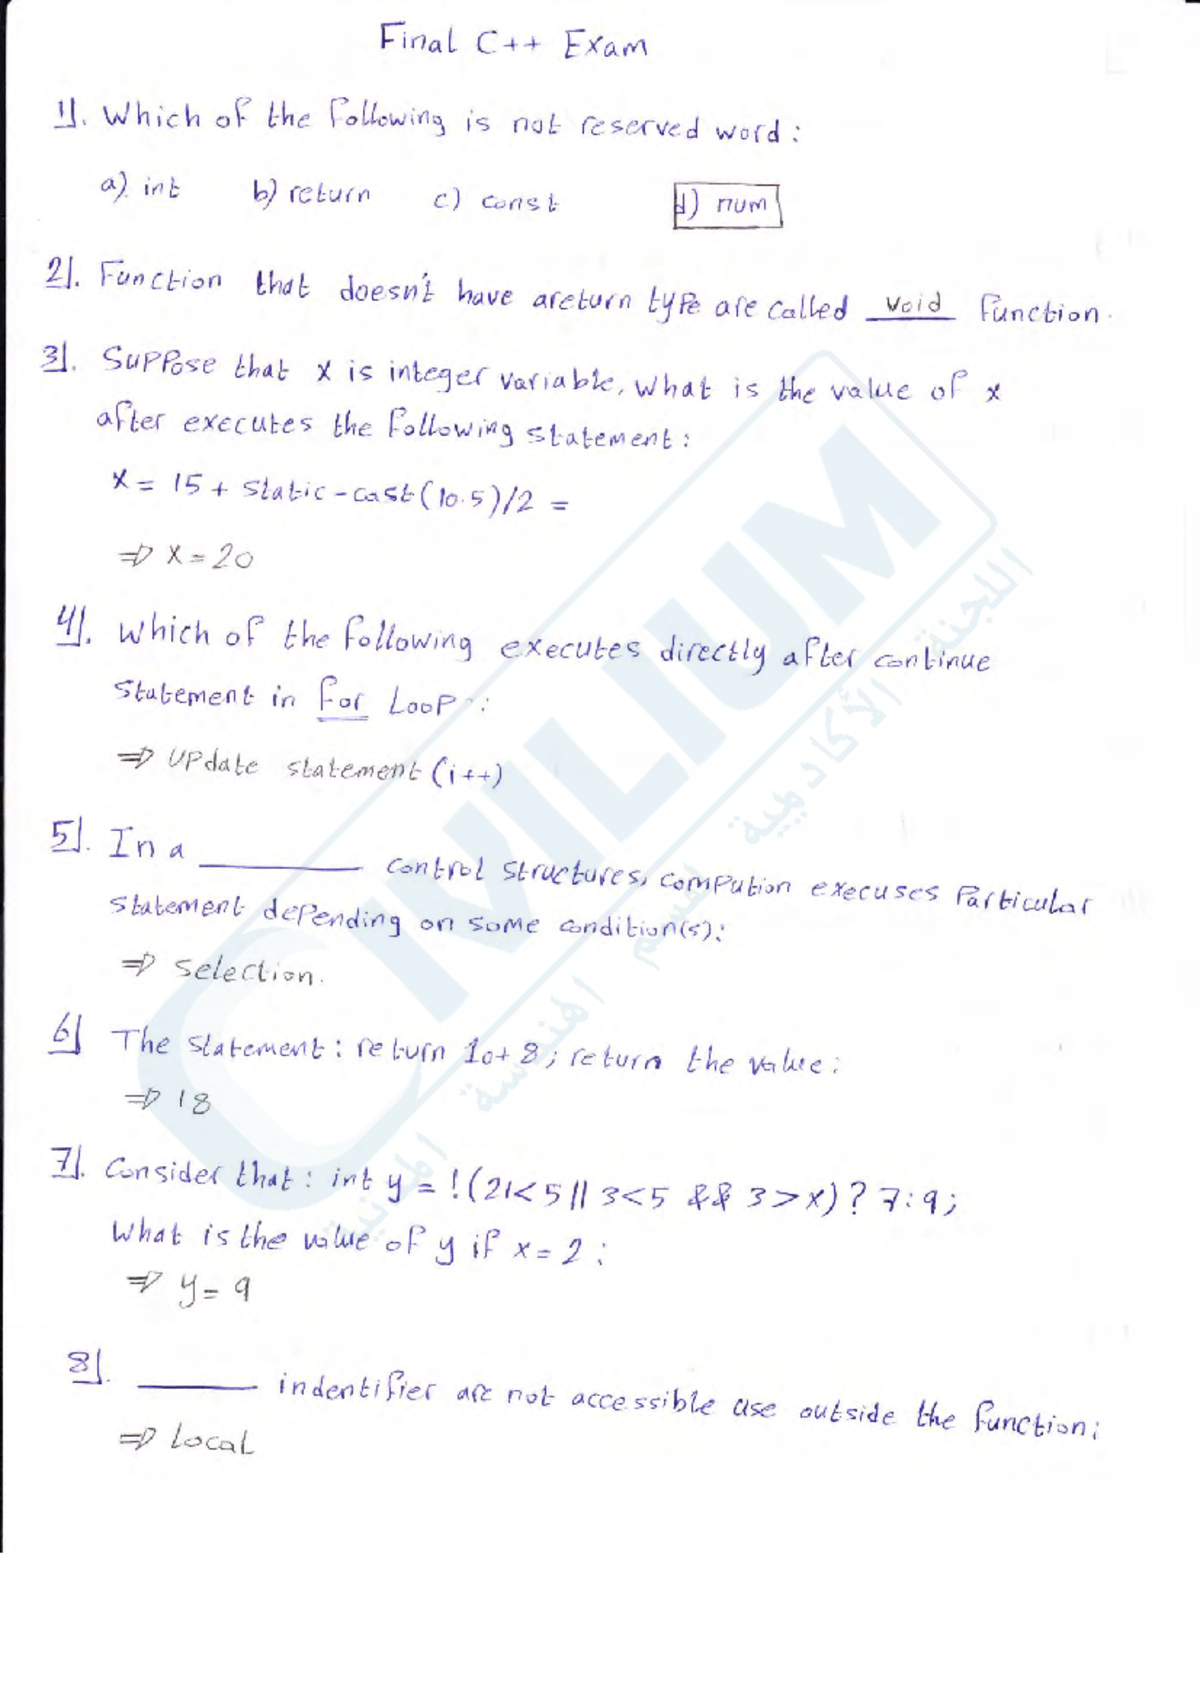 Final C++ Exam
1). Which of the following is not reserved word:
a) int b) return c) const d) num
2). Function that doesn't have areturn type are called void function.
3). Suppose that x is integer variable, what is the value of x
after executes the following statement:
x = 15 + static-cast(10.5)/2 =
⇒ x = 20
4). which of the following executes directly after continue
statement in for Loop:
⇒ Update statement (i++)
5). In a ________ control structures, compution execuses Particular
statement depending on some condition(s):
⇒ selection.
6) The statement: return 10+8; return the value:
⇒ 18
7). Consider that: int y = !(21<5 || 3<5 && 3>x) ? 7:9;
What is the value of y if x = 2:
⇒ y = 9
8). ________ indentifier are not accessible use outside the function:
⇒ Local
CIVILIUM
اللجنة الأكاديمية لقسم الهندسة المدنية